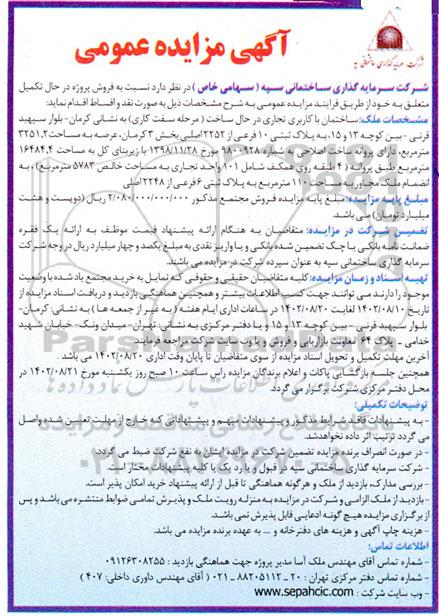 آگهی مزایده عمومی
شرکت سرمایه گذاری ساختمانی سپه (سهامی خاص) در نظر دارد نسبت به فروش پروژه در حال تکمیل
متعلق به خود از طریق فرایند مزایده عمومی به شرح مشخصات ذیل به صورت نقد و اقساط اقدام نماید:
مشخصات ملک: ساختمان با کاربری تجاری در حال ساخت (مرحله سفت کاری) به نشانی کرمان- بلوار سپهبد
قرنی - بین کوچه ۱۳ و ۱۵، به پلاک ثبتی ۱۰ فرعی از ۲۲۵۲ اصلی بخش ۳ کرمان، عرصه به مساحت ۳۲۵۱,۲
مترمربع، دارای پروانه ساخت اصلاحی به شماره ۱۸۰۰۹۲۸ مورخ ۱۳۹۸/۱۱/۲۸ با زیربنای کل به مساحت ۱۶۴۸۴,۴
مترمربع طبق پروانه (۴ طبقه روی همکف شامل ۱۰۱ واحد تجاری به مساحت خالص ۵۷۸۳ مترمربع)، به
انضمام ملک مجاور به مساحت ۱۱۰ مترمربع به پلاک ثبتی ۶ فرعی از ۲۲۴۸ اصلی
مبلغ پایه مزایده: مبلغ پایه مزایده فروش مجتمع مذکور ۲/۰۸۰/۰۰۰/۰۰۰/۰۰۰ ریال (دویست و هشت
میلیارد تومان) می باشد.
تضمین شرکت در مزایده: متقاضیان به هنگام ارائه پیشنهاد قیمت موظف به ارائه یک فقره
ضمانت نامه بانکی یا چک تضمین شده بانکی و یا واریز نقدی به مبلغ یکصد و چهار میلیارد ریال در وجه شرکت
سرمایه گذاری ساختمانی سپه به عنوان سپرده شرکت در مزایده می باشند.
تهیه اسناد و زمان مزایده: کلیه متقاضیان حقیقی و حقوقی که تمایل به خرید مجتمع یاد شده با وضعیت
موجود را دارند می توانند جهت کسب اطلاعات بیشتر و همچنین هماهنگی بازدید و دریافت اسناد مزایده از
تاریخ ۱۴۰۲/۰۸/۱۰ لغایت ۱۴۰۲/۰۸/۲۰ در ساعات اداری ایام هفته به غیر از جمعه ها) به نشانی: کرمان-
بلوار سپهبد قرنی - بین کوچه ۱۳ و ۱۵ و یا دفتر مرکزی به نشانی: تهران- میدان ونک- خیابان شهید
خدامی - پلاک ۶۴ معاونت بازاریابی و فروش و یا وب سایت شرکت مراجعه فرمایند.
آخرین مهلت تکمیل و تحویل اسناد مزایده از سوی متقاضیان تا پایان وقت اداری ۱۴۰۲/۰۸/۲۰ می باشد.
همچنین جلسه بازگشایی پاکات و اعلام برندگان مزایده راس ساعت ۱۰ صبح روز یکشنبه مورخ ۱۴۰۲/۰۸/۲۱ در
محل دفتر مرکزی شرکت برگزار می گردد.
توضیحات تکمیلی:
- به پیشنهادات فاقد شرایط مذکور و پیشنهادات مبهم و پیشنهاداتی که خارج از مهلت تعیین شده واصل
می گردد ترتیب اثر داده نخواهد شد.
- در صورت انصراف برنده مزایده تضمین شرکت در مزایده ایشان به نفع شرکت ضبط می گردد.
- شرکت سرمایه گذاری ساختمانی سپه در قبول و یا رد یک یا کلیه پیشنهادات مختار است.
- بررسی مدارک، بازدید از ملک و هرگونه هماهنگی تا قبل از ارائه پیشنهاد خرید امکان پذیر است.
- بازدید از ملک الزامی و شرکت در مزایده به منزله رویت ملک و پذیرش تمامی ضوابط منتشره می باشد و پس
از برگزاری مزایده هیچ گونه ادعایی قابل پذیرش نمی باشد.
- هزینه چاپ آگهی و هزینه های دفترخانه و ... به عهده برنده مزایده می باشد.
اطلاعات تماس:
- شماره تماس آقای مهندس ملک آسا مدیر پروژه جهت هماهنگی بازدید: ۰۹۱۲۶۳۰۸۲۵۵
- شماره تماس دفتر مرکزی تهران: ۲۰ - ۸۸۲۰۵۱۱۲ - ۰۲۱ (آقای مهندس داوری داخلی: ۴۰۷)
- وب سایت شرکت: www.sepahcic.com